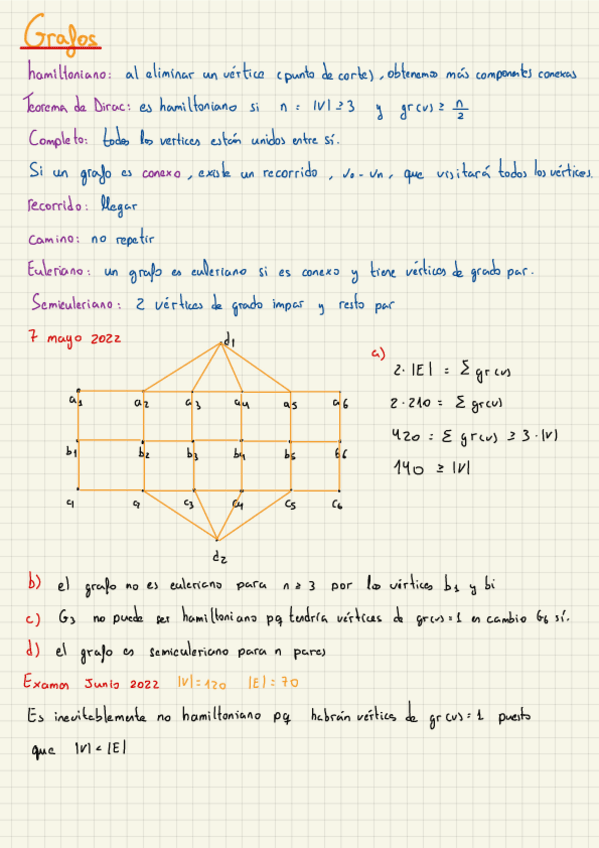 Grafos
hamiltoniano: al eliminar un vértice (punto de corte), obtenemos más componentes conexas
Teorema de Dirac: es hamiltoniano si n = |V| ≥ 3 y gr(v) ≥ n/2
Completo: todos los vertices están unidos entre sí.
Si un grafo es conexo, existe un recorrido, v₀-vn, que visitará todos los vértices.
recorrido: llegar
camino: no repetir
Euleriano: un grafo es euleriano si es conexo y tiene vértices de grado par.
Semieuleriano: 2 vértices de grado impar y resto par
7 mayo 2022
d1
a1 a2 a3 a4 a5 a6
b1 b2 b3 b4 b5 b6
c1 c2 c3 c4 c5 c6
d2
a)
2·|E| = Σ gr(v)
2·210 = Σ gr(v)
420 = Σ gr(v) ≥ 3·|V|
140 ≥ |V|
b) el grafo no es euleriano para n ≥ 3 por los vértices b1 y bi
c) G3 no puede ser hamiltoniano pq tendría vértices de gr(v)=1 en cambio G6 sí.
d) el grafo es semieuleriano para n pares
Examen Junio 2022 |V|=120 |E|=70
Es inevitablemente no hamiltoniano pq habrán vértices de gr(v)=1 puesto
que |V| < |E|